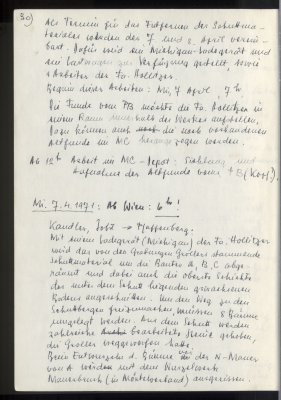 30)
Als Termin für das Entfernen des Schuttma-
teriales werden der 7. und 8. April verein-
bart. Dafür wird ein Michigan-Ladegerät und
ein Lastwagen zur Verfügung gestellt, sowie
Arbeiter der Fa. Hollitzer.
Beginn dieser Arbeiten: Mi, 7. April, 7h
Die Funde vom PB möchte die Fa. Hollitzer in
einem Raum innerhalb des Werkes aufstellen.
Dazu können auch noch die noch vorhandenen
Altfunde im MC herangezogen werden.
Ab 12h Arbeit im MC-Depot: Sichtung und
Aufnahme der Altfunde vom PB (Kopf).
Mi. 7.4.1971: Ab Wien: 6h!
Kandler, Jobst → Pfaffenberg.
Mit einem Ladegerät (Michigan) der Fa. Hollitzer
wird das von den Grabungen Grollers stammende
Schuttmaterial um die Bauten A, B, C abge-
räumt und dabei auch die oberste Schichte
des unter dem Schutt liegenden gewachsenen
Bodens angeschnitten. Um den Weg zu den
Schuttbergen freizumachen müssen 8 Bäume
umgelegt werden. Aus dem Schutt werden
zahlreiche bearbeitete Steine gehoben,
die Groller weggeworfen hatte.
Beim Entwurzeln d. Bäume der N-Mauer
von A werden mit dem Wurzelwerk
Mauerbruch (im Mörtelverband) ausgerissen.